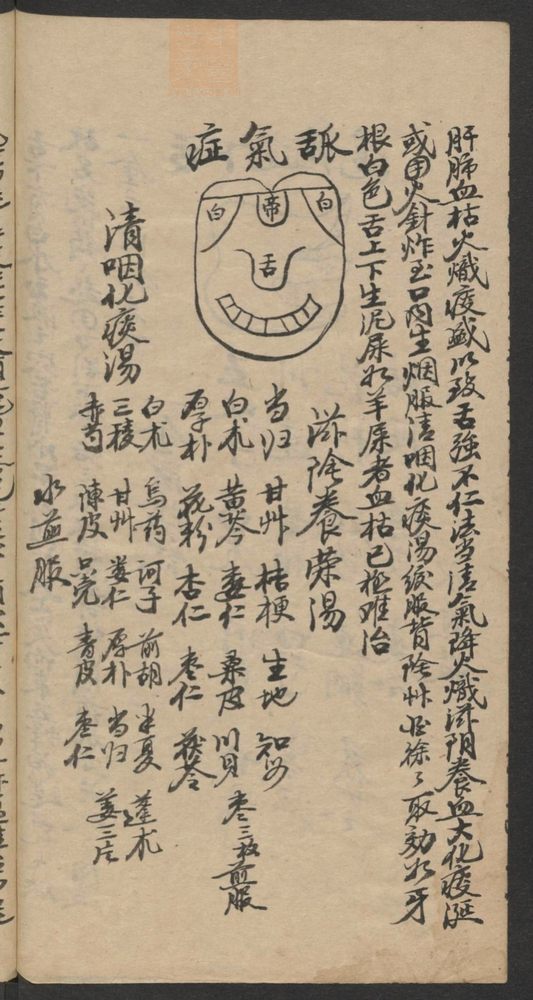 肝肺血枯火熾痰盛以致舌強不仁法当清氣降火熾滋阴養血大化痰涎
或用火針炸玉口內生烟服清咽化痰湯緩服背陰艸 徐々取効如牙
根白色舌上下生泥屎如羊屎者血枯已極难治
舐氣症
白 帝 白
舌
滋陰養荣湯
当归 甘艸 桔梗 生地 知母
白术 黄芩 蔞仁 桑皮 川貝 枣三枚煎服
厚朴 花粉 杏仁 枣仁 茯苓
清咽化痰湯
白术 烏药 诃子 前胡 半夏 蓬朮
三稜 甘艸 蔞仁 厚朴 当归 姜三片
赤芍 陳皮 只壳 青皮 枣仁
水煎服